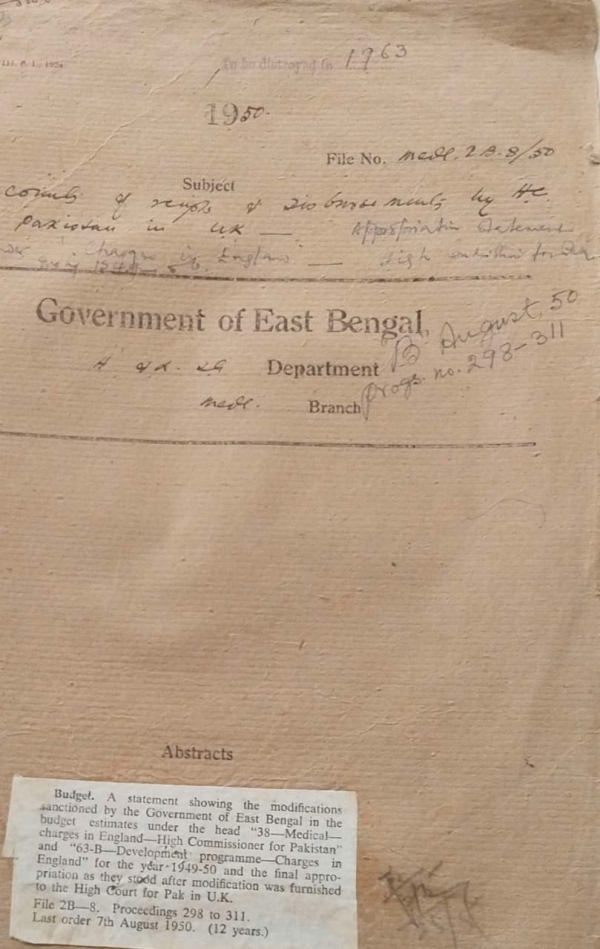 To be destroyed in 1963
1950.
File No. Medl. 2B-8/50
Subject
of receipts & Disbursements by H.C.
Pakistan in UK — Appropriation Statement
Charges in England — High
during 1949-50.
Government of East Bengal,
Department
Medl. Branch
B August, 50
Progs. no. 298-311
Abstracts
Budget. A statement showing the modifications
sanctioned by the Government of East Bengal in the
budget estimates under the head "38—Medical—
charges in England—High Commissioner for Pakistan"
and "63-B—Development programme—Charges in
England" for the year 1949-50 and the final appro-
priation as they stood after modification was furnished
to the High Court for Pak in U.K.
File 2B—8. Proceedings 298 to 311.
Last order 7th August 1950. (12 years.)